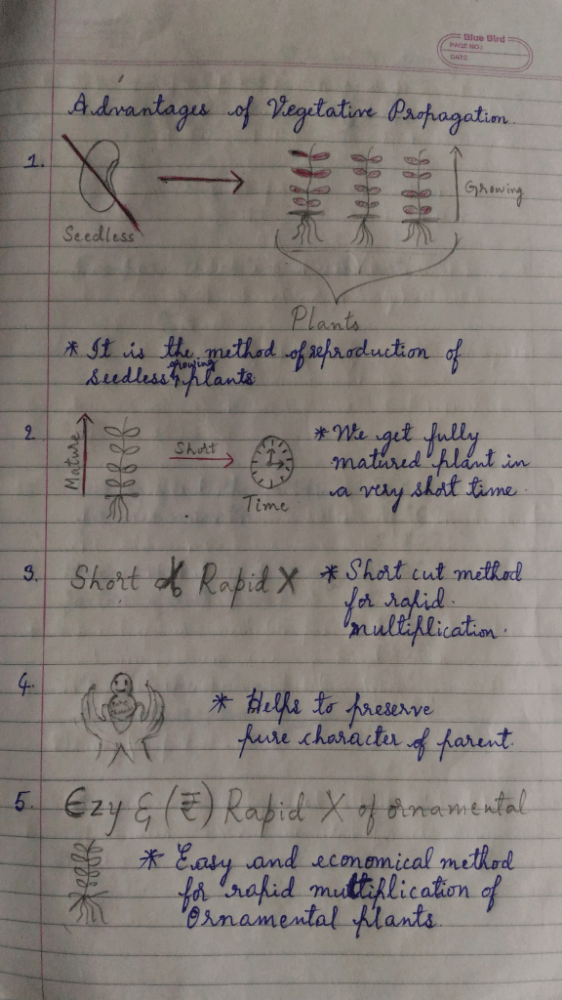 Blue Bird
PAGE NO.:
DATE
Advantages of Vegetative Propagation.
1.
Seedless
Growing
Plants
* It is the method of reproduction of
growing
seedless plants
2
Mature
Short
Time
* We get fully
matured plant in
a very short time.
3. Short Rapid X
* Short cut method
for rapid
multiplication.
4.
* Helps to preserve
pure character of parent.
5. Ezy & (₹) Rapid X of ornamental
* Easy and economical method
for rapid multiplication of
Ornamental plants.